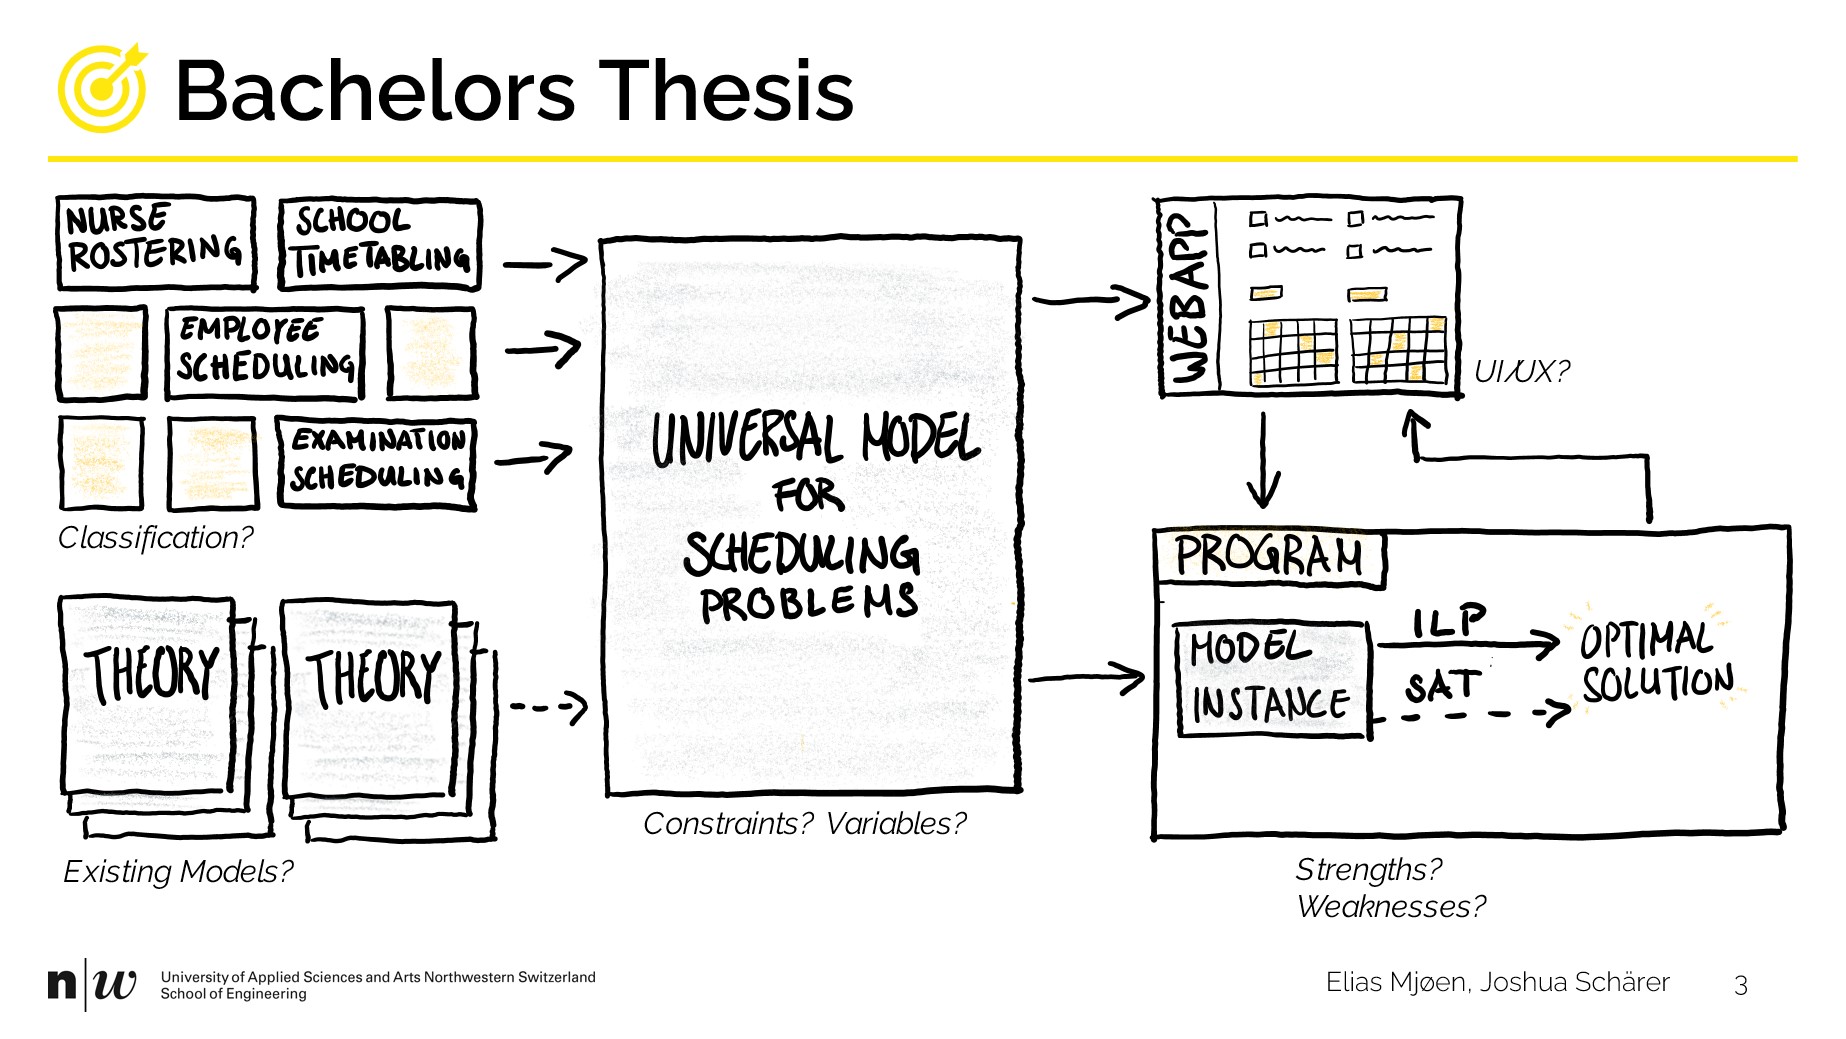 Bachelors Thesis
NURSE
ROSTERING
SCHOOL
TIMETABLING
EMPLOYEE
SCHEDULING
EXAMINATION
SCHEDULING
Classification?
THEORY
THEORY
Existing Models?
UNIVERSAL MODEL
FOR
SCHEDULING
PROBLEMS
Constraints? Variables?
WEBAPP
UI/UX?
PROGRAM
MODEL
INSTANCE
ILP
SAT
OPTIMAL
SOLUTION
Strengths?
Weaknesses?
n|w
University of Applied Sciences and Arts Northwestern Switzerland
School of Engineering
Elias Mjøen, Joshua Schärer
3